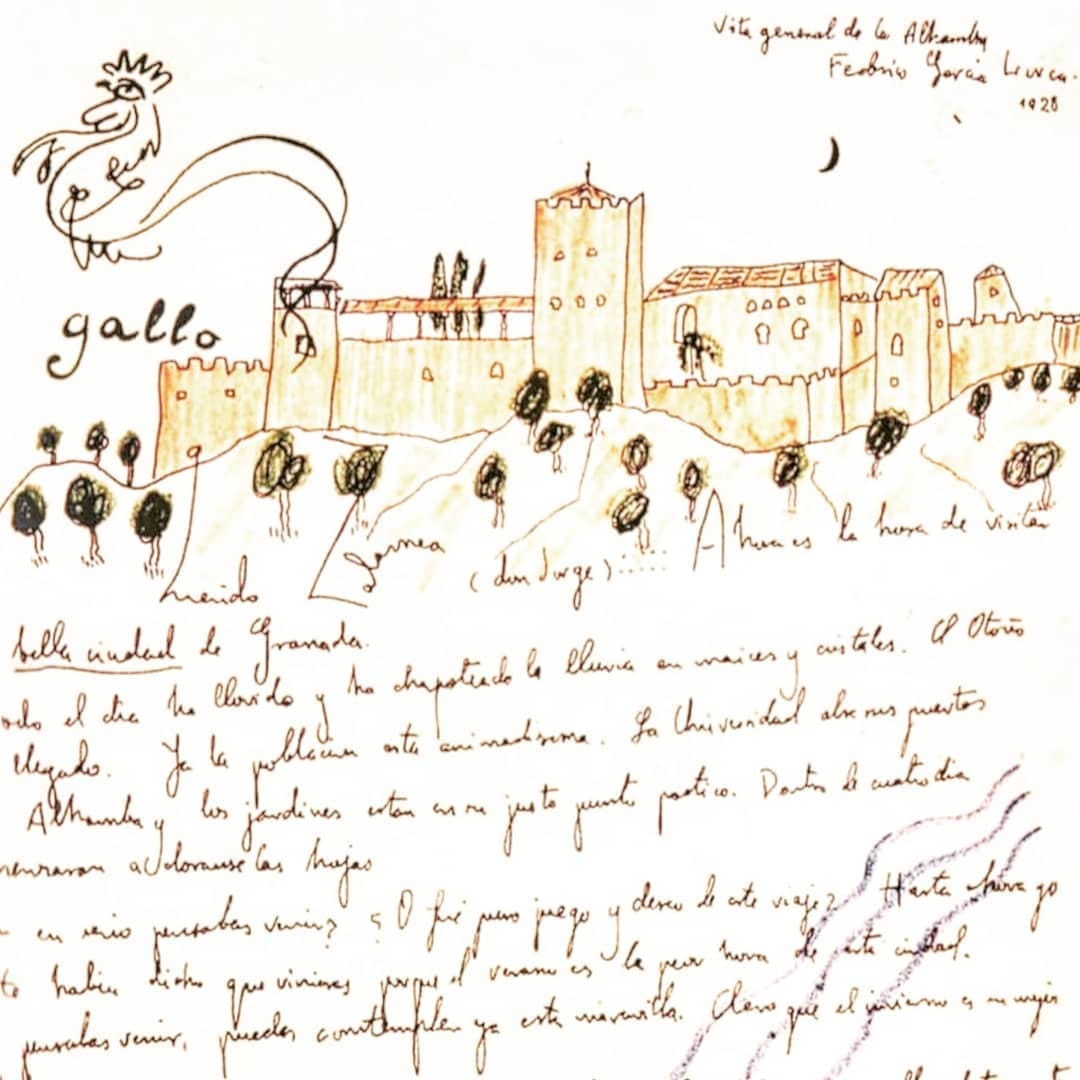 Vista general de la Alhambra
Federico García Lorca.
1928
gallo
Querido
(don Jorge)...... Ahora es la hora de visitar
bella ciudad de Granada.
odo el día ha llovido y ha chapoteado la lluvia en maices y cristales. El Otoño
llegado. Ya la población está animadísima. La Universidad abre sus puertas
Alhambra y los jardines estan en su justo punto poetico. Dentro de cuatro dia
menzaran a dorarse las hojas
en serio pensabas venir? ¿O fué puro juego y deseo de este viaje? Hasta ahora yo
te había dicho que vinieras porque el verano es la peor hora de esta ciudad.
pensabas venir, puedes contemplar ya esta maravilla. Claro que el invierno es su mejor